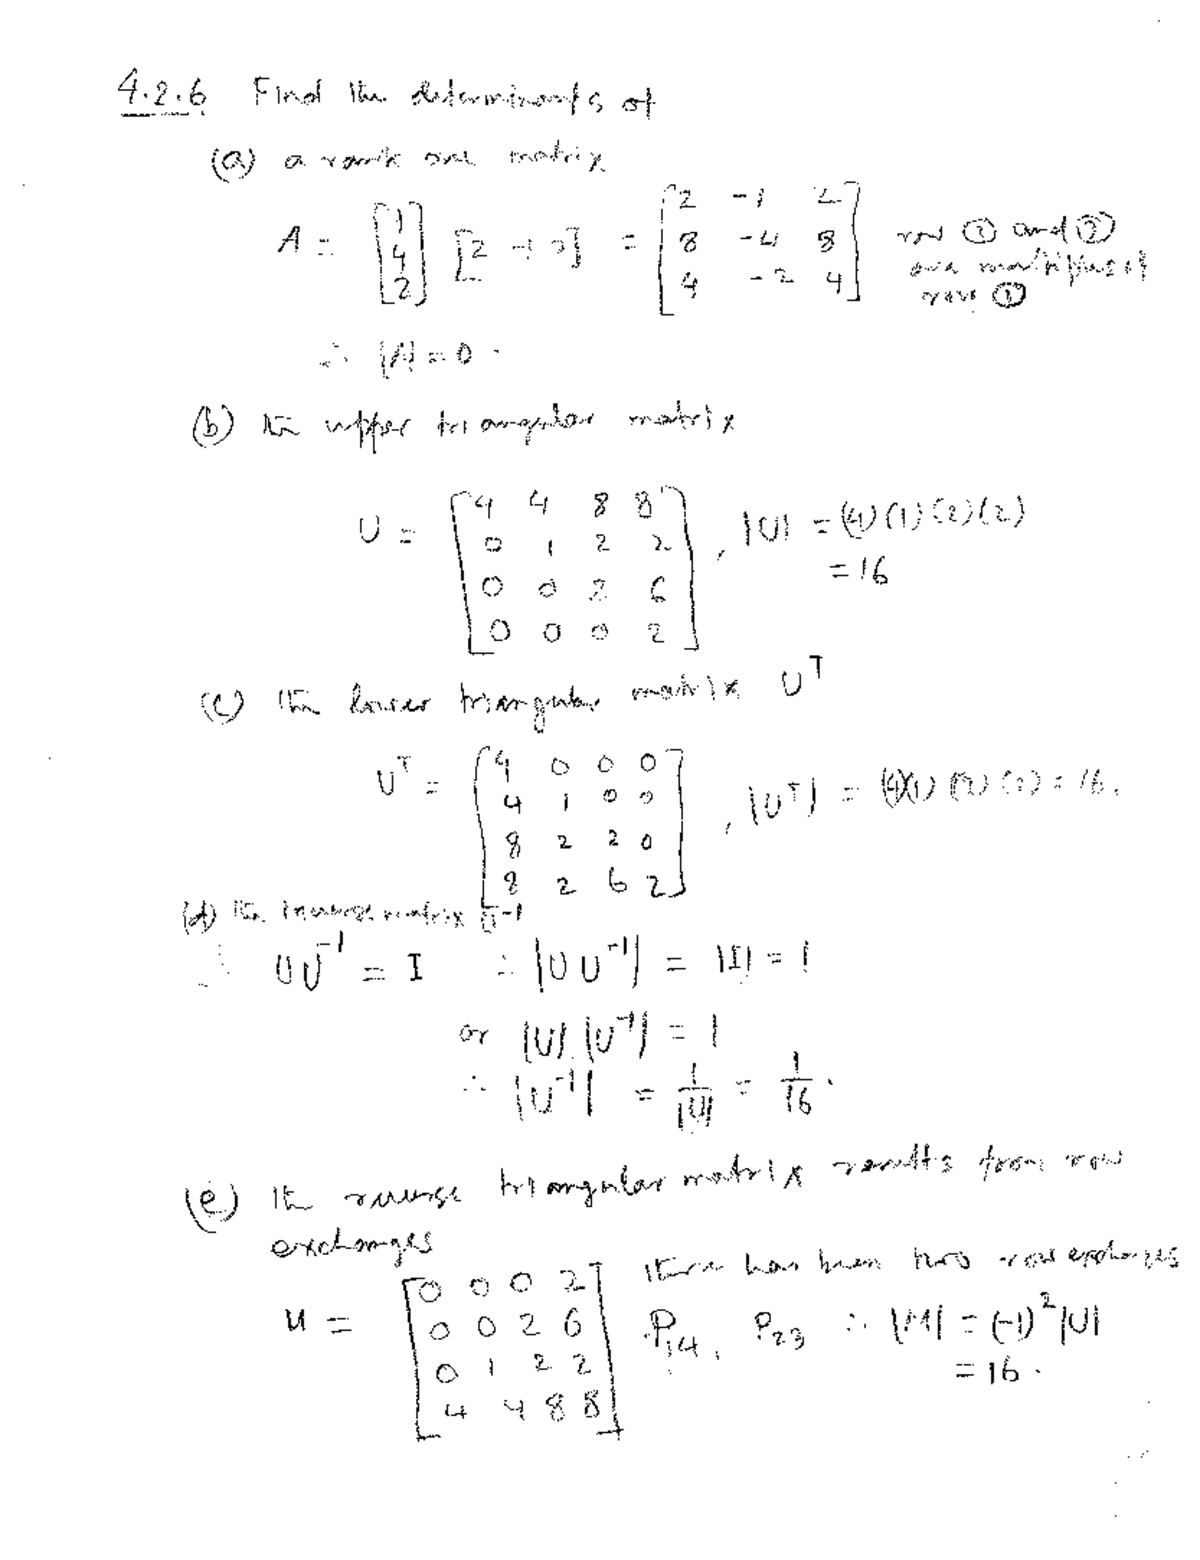 4.2.6 Find the determinants of
(a) a rank one matrix
A = [1 4 2] [2 -1 2] = [2 -1 2
8 -4 8
4 -2 4] row ② and ③ are multiples of row ①
∴ |A| = 0.
(b) the upper triangular matrix
U = [4 4 8 8
0 1 2 2
0 0 2 6
0 0 0 2] , |U| = (4)(1)(2)(2)
= 16
(c) the lower triangular matrix U^T
U^T = [4 0 0 0
4 1 0 0
8 2 2 0
8 2 6 2] , |U^T| = (4)(1)(2)(2) = 16.
(d) the inverse matrix U^-1
UU^-1 = I ∴ |UU^-1| = |I| = 1
or |U|.|U^-1| = 1
∴ |U^-1| = 1/|U| = 1/16.
(e) the reverse triangular matrix results from row
exchanges
M = [0 0 0 2
0 0 2 6
0 1 2 2
4 4 8 8] there has been two row exchanges
P14, P23 ∴ |M| = (-1)^2 |U|
= 16.